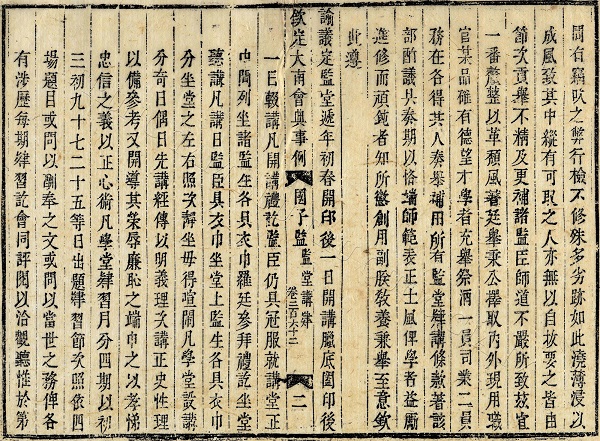 間有竊臥之弊行檢不修殊多劣跡如此澆薄浸以
成風致其中縱有可取之人亦無以自拔要之皆由
節次貢舉不精及更補諸監臣師道不嚴所致茲宜
一番整整以革頹風著廷舉秉公擇取內外現用職
官某品確有德望才學者充舉祭酒一員司業二員
務在各得其人奏舉補用所有監堂肄講條款著該
部酌議具奏期以恪端師範表正士風俾學者益勵
進修而頑鈍者知所懲創用副朕敎養兼舉至意欽
此遵
諭議定監堂遞年初春開印後一日開講臘底闔印後
欽定大南會典事例 國子監 監堂講肄 卷二百六十二 二
一日輟講凡開講禮訖監臣仍具冠服就講堂正
中間列坐諸監生各具衣巾羅廷參拜禮訖坐堂
聽講凡講日監臣具衣巾坐堂上監生各具衣巾
分坐堂之左右照次靜坐毋得喧鬧凡學堂設講
分奇日偶日先講經傳以明義理次講正史性理
以備參考又開導其榮辱廉恥之端申之以孝悌
忠信之義以正心術凡學堂肄習月分四期以初
三初九十七二十五等日出題肄習節次照依四
場題目或問以酬奉之文或問以當世之務俾各
有涉歷每期肄習訖會同評閱以洽觀聽惟於第